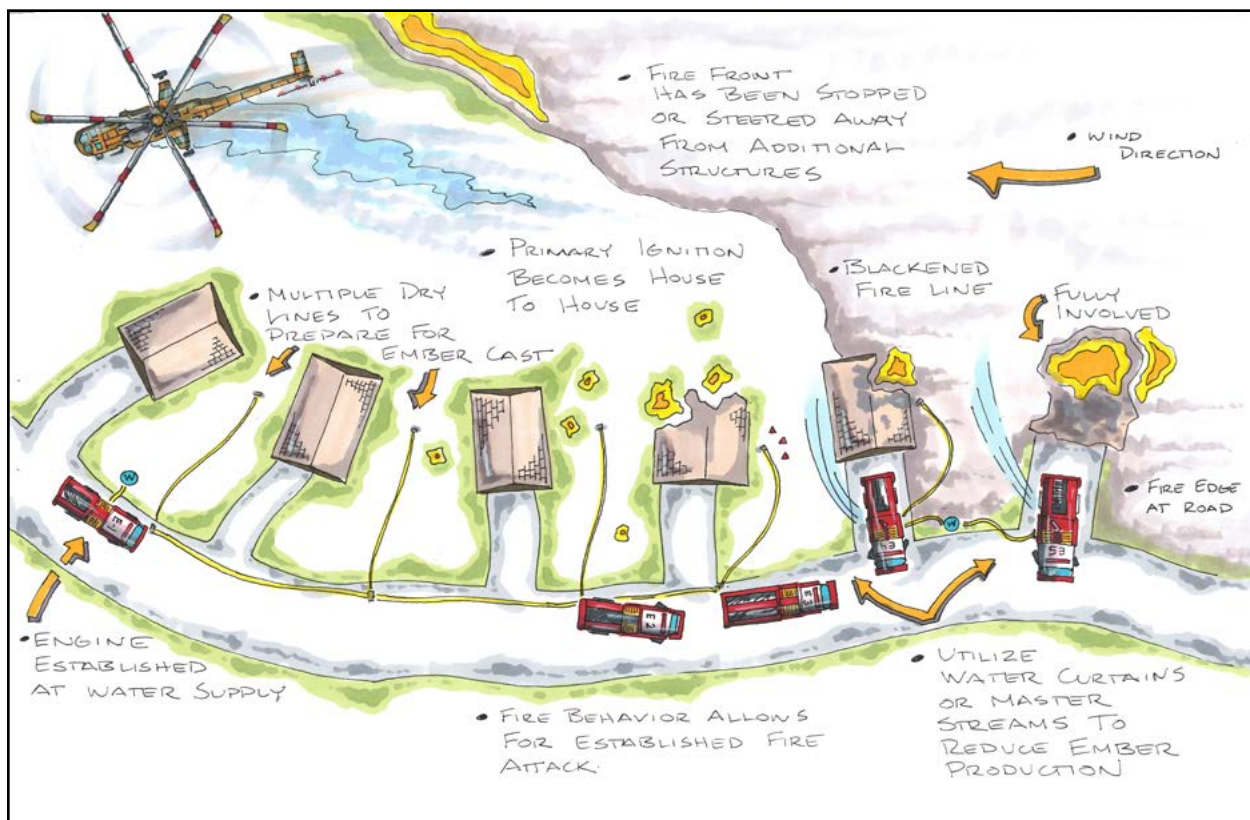 • FIRE FRONT
HAS BEEN STOPPED
OR STEERED AWAY
FROM ADDITIONAL
STRUCTURES
• WIND
DIRECTION
• PRIMARY IGNITION
BECOMES HOUSE
TO HOUSE
• BLACKENED
FIRE LINE
• FULLY
INVOLVED
• MULTIPLE DRY
LINES TO
PREPARE FOR
EMBER CAST
• FIRE EDGE
AT ROAD
W
W
E1
E2
E3
E4
E5
• ENGINE
ESTABLISHED
AT WATER SUPPLY
• FIRE BEHAVIOR ALLOWS
FOR ESTABLISHED FIRE
ATTACK.
• UTILIZE
WATER CURTAINS
OR MASTER
STREAMS TO
REDUCE EMBER
PRODUCTION